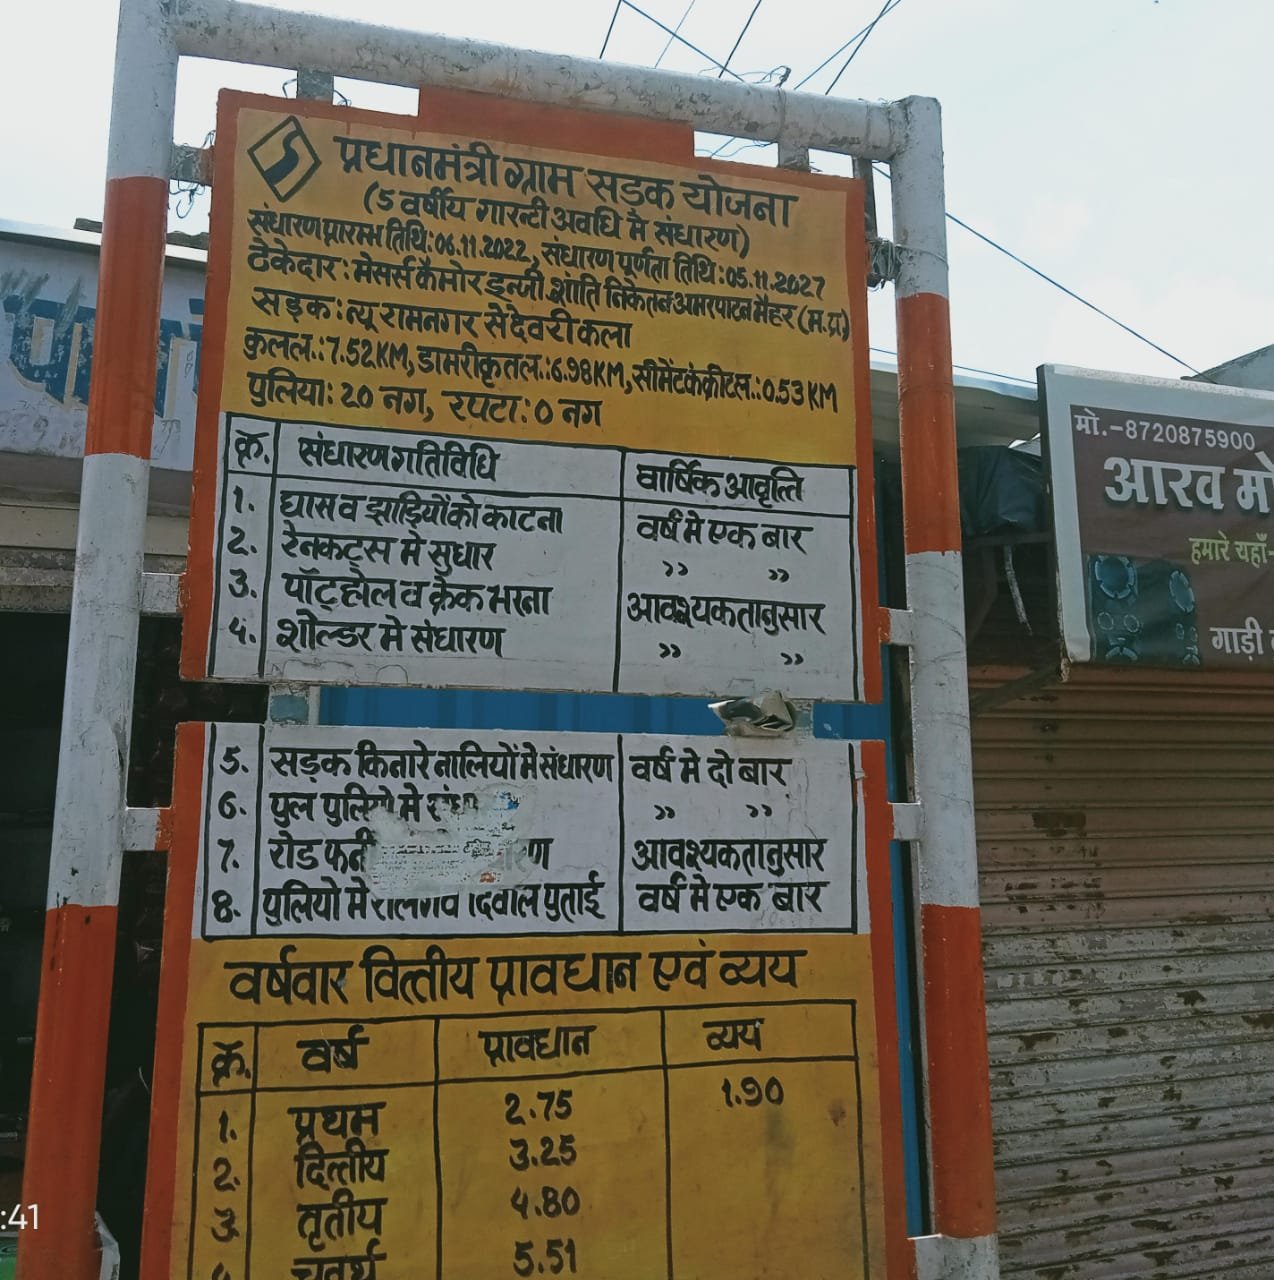 प्रधानमंत्री ग्राम सड़क योजना
(5 वर्षीय गारन्टी अवधि मै संधारण)
संधारण प्रारम्भ तिथि:06.11.2022, संधारण पूर्णता तिथि:05.11.2027
ठेकेदार: मेसर्स कैमोर इन्जी. शांति निकेतन अमरपाटन मैहर (म.प्र)
सड़क: न्यू रामनगर से देवरीकला
कुलल.:7.52KM, डामरीकृतल.:6.98KM, सीमेंटकंक्रीटल.:0.53 KM
पुलिया: 20 नग, रपटा: 0 नग
क्र. संधारण गतिविधि वार्षिक आवृत्ति
1. घास व झाड़ियों को काटना वर्ष मे एक बार
2. रेनकट्स मे सुधार ,, ,,
3. पॉट्होल व क्रेक भरना आवश्यकतानुसार
4. शोल्डर मे संधारण ,, ,,
5. सड़क किनारे नालियों मे संधारण वर्ष मे दो बार
6. पुल पुलियो मे ,, ,,
7. रोड आवश्यकतानुसार
8. पुलियो मे दिवाल पुताई वर्ष मे एक बार
वर्षवार वित्तीय प्रावधान एवं व्यय
क्र. वर्ष प्रावधान व्यय
1. प्रथम 2.75 1.90
2. द्वितीय 3.25
3. तृतीय 4.80
4. चतुर्थ 5.51
मो.-8720875900
आरव
हमारे यहाँ-
गाड़ी
:41